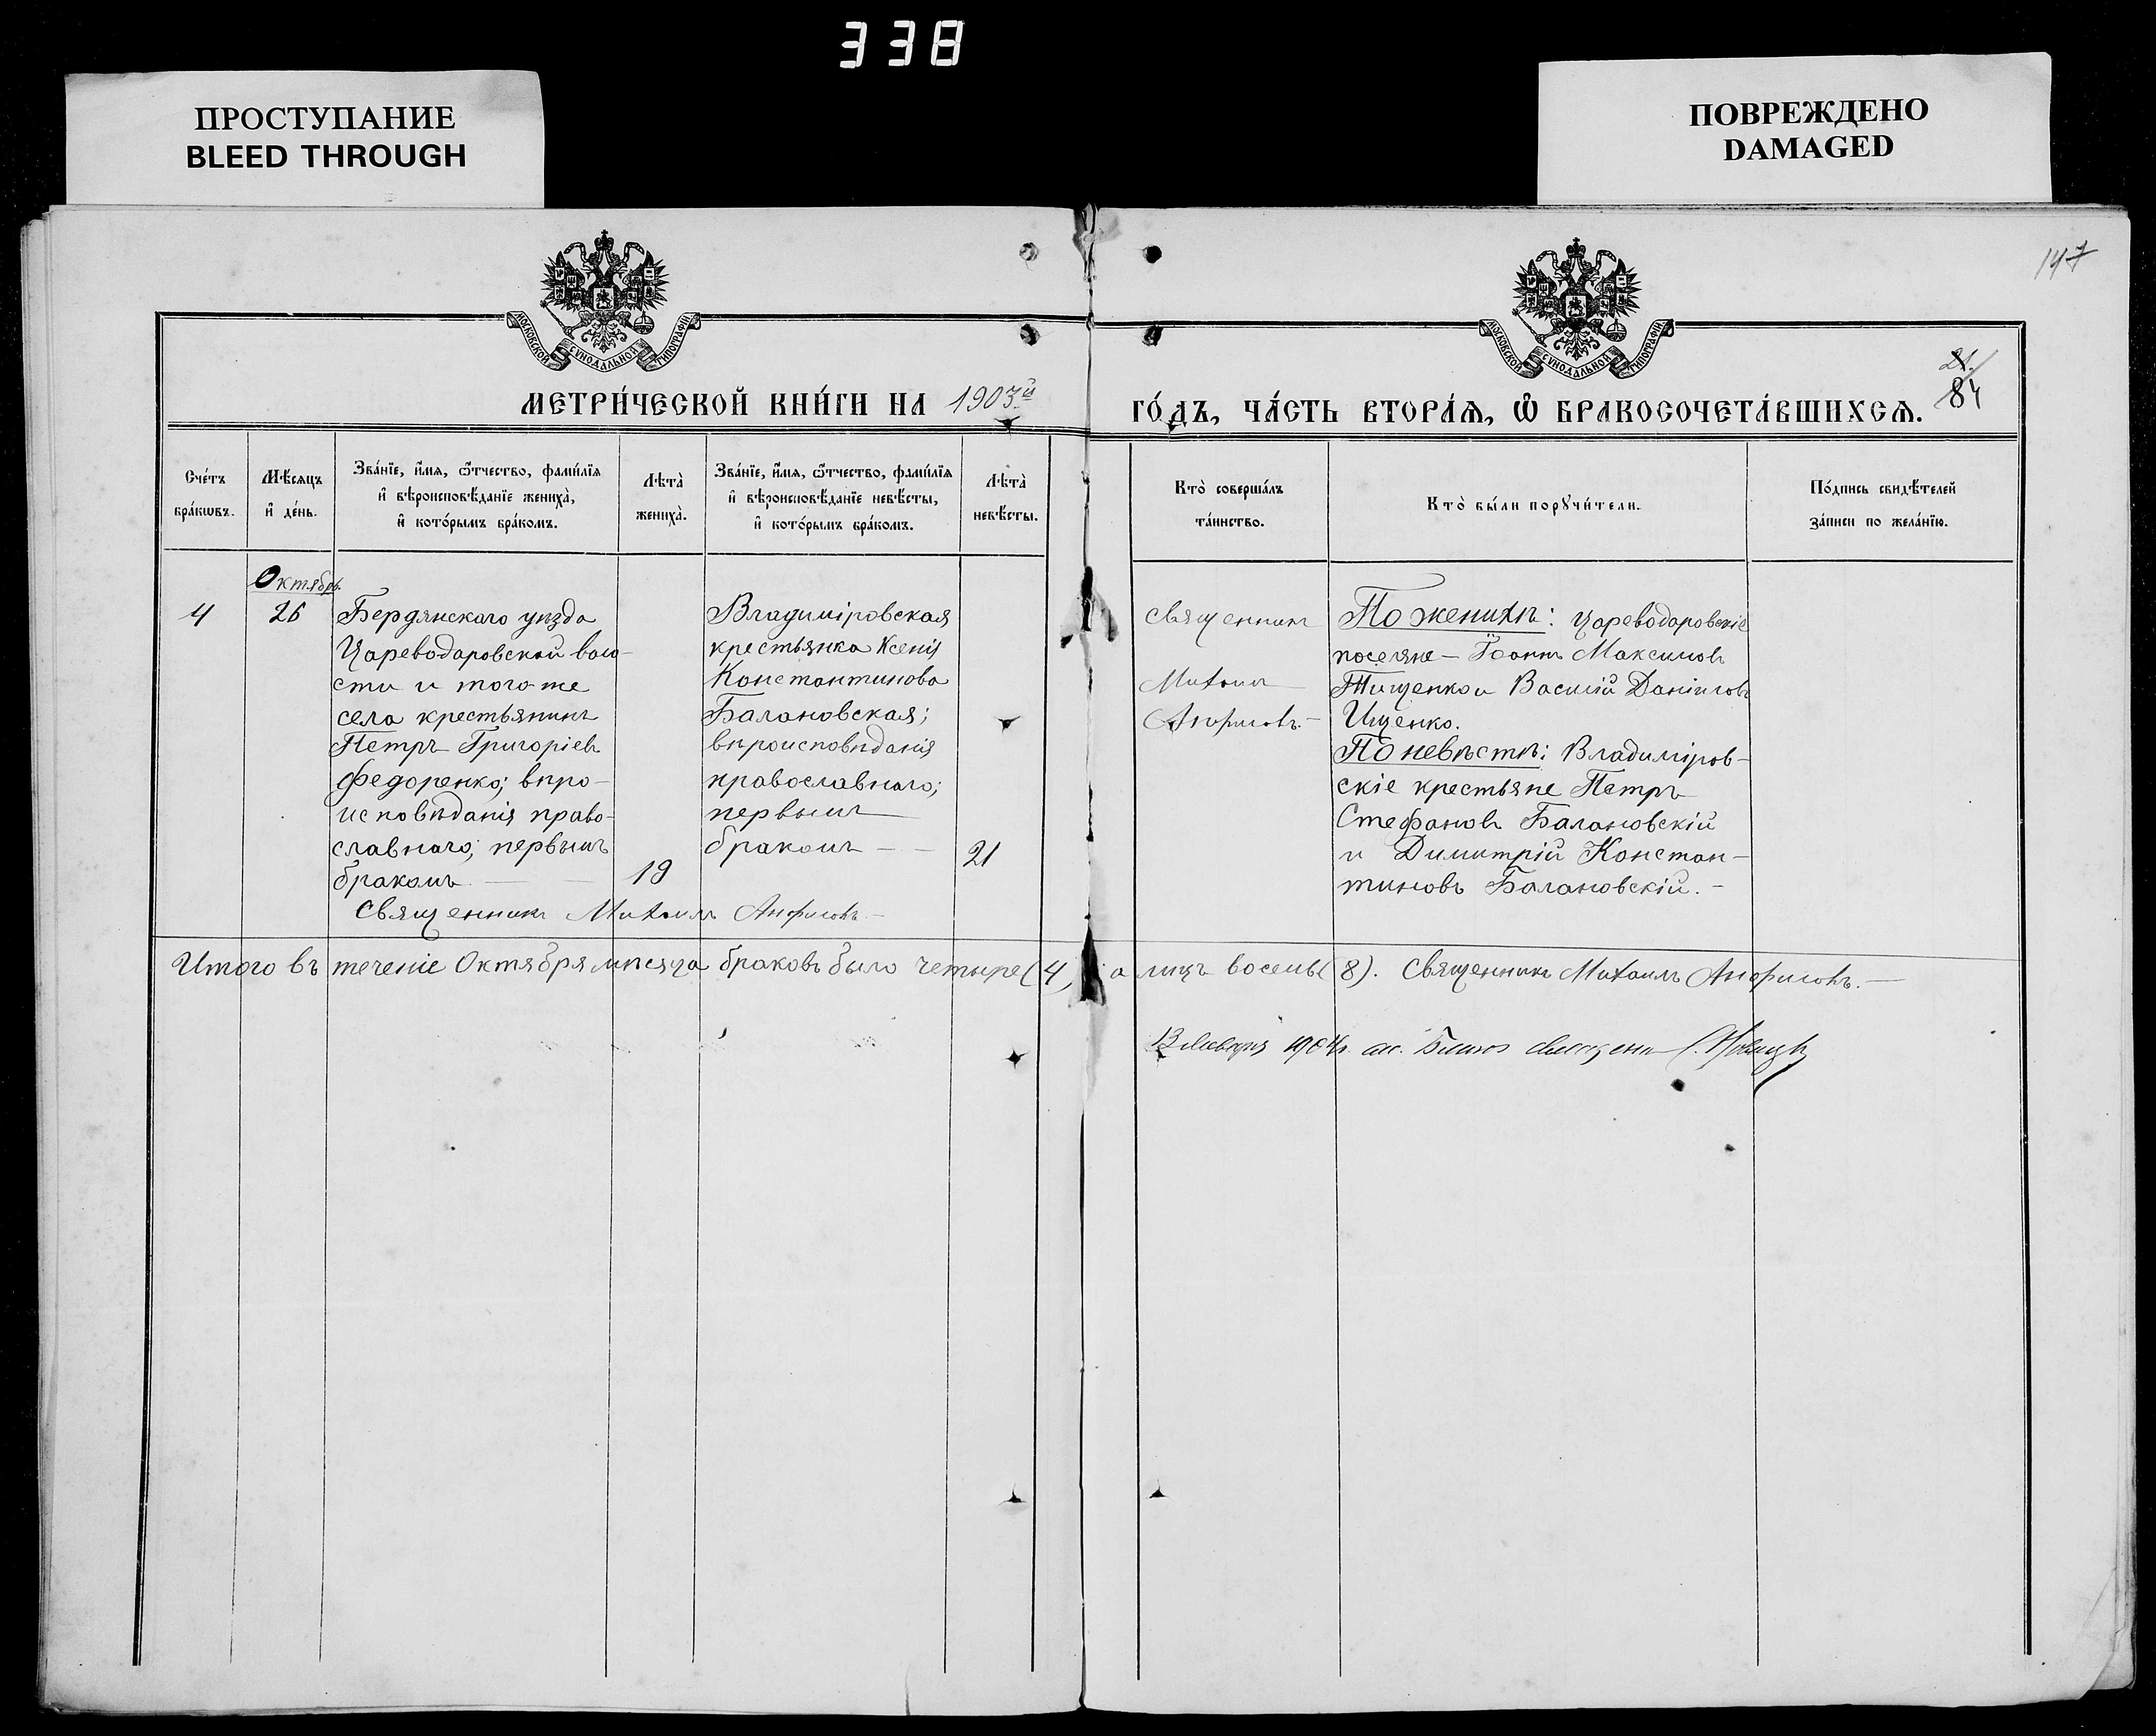 338
ПРОСТУПАНИЕ
BLEED THROUGH
ПОВРЕЖДЕНО
DAMAGED
147
МОСКОВСКОЙ СѴНОДАЛЬНОЙ ТИПОГРАФІИ
МОСКОВСКОЙ СѴНОДАЛЬНОЙ ТИПОГРАФІИ
МЕТРИ́ЧЕСКОЙ КНИ́ГИ НА 1903й
ГО́ДЪ, ЧА́СТЬ ВТОРА́Ѧ, Ѡ҆ БРАКОСОЧЕТА́ВШИХСѦ.
21.
84
Сче́тъ
бра́кѡвъ.
Мѣ́сѧцъ
и҆ де́нь.
Зва́нїе, и҆́мѧ, ѻ҆́тчество, фами́лїѧ
и҆ вѣроисповѣ́данїе жениха̀,
и҆ кото́рымъ бра́комъ.
Лѣта̀
жениха̀.
Зва́нїе, и҆́мѧ, ѻ҆́тчество, фами́лїѧ
и҆ вѣроисповѣ́данїе невѣ́сты,
и҆ кото́рымъ бра́комъ.
Лѣта̀
невѣ́сты.
Кто̀ соверша́лъ
та́инство.
Кто̀ бы́ли порꙋчи́тели.
По́дпись свидѣ́телей
за́писи по жела́нїю.
Октябрь.
4
26
Бердянскаго уѣзда
Цареводаровской воло-
сти и того же
села крестьянинъ
Петръ Григоріевъ
Федоренко; вѣро-
исповѣданія право-
славнаго; первымъ
бракомъ
19
Владиміровская
крестьянка Ксенія
Константинова
Балановская;
вѣроисповѣданія
православнаго;
первымъ
бракомъ
21
Священникъ
Михаилъ
Анфиловъ.
По женихѣ: Цареводаровскіе
поселяне – Іоаннъ Максимовъ
Тищенко и Василій Даніиловъ
Ищенко.
По невѣстѣ: Владиміров-
скіе крестьяне Петръ
Стефановъ Балановскій
и Димитрій Констан-
тиновъ Балановскій.
Священникъ Михаилъ Анфиловъ.
Итого въ теченіе Октября мѣсяца браковъ было четыре (4), а лицъ восемь (8). Священникъ Михаилъ Анфиловъ.
1904г.